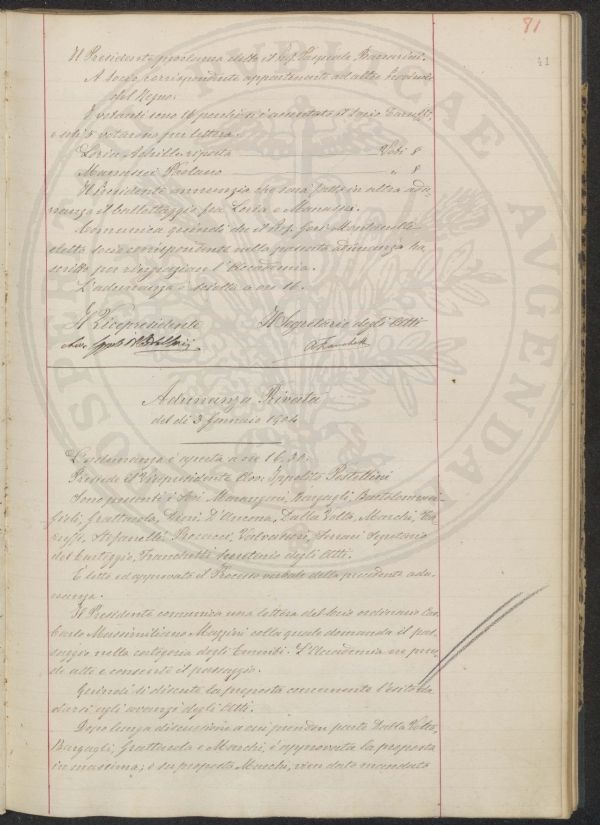 81
41
Il Presidente proclama eletto il Prof. Pasquale Baccarini.
A Socio corrispondente appartenente ad altre provincie
del Regno.
I votanti sono 16 perchè si è assentato il Socio
ed i 5 votarono per lettera.
Loria Achille riporta Voti 8
Manassei Paolano " 8
Il Presidente annunzia che sarà fatto in altra adu-
nanza il ballottaggio fra Loria e Manassei.
Comunica quindi che il Prof. Gori Montanelli
eletto socio corrispondente nella passata adunanza ha
scritto per ringraziare l'Accademia.
L'adunanza è sciolta a ore 16.
Il Vicepresidente Il Segretario degli Atti
Adunanza Privata
del dì 3 Gennaio 1904
L'adunanza è aperta a ore 16,30.
Presiede il Vicepresidente Avv. Ippolito Pestellini
Sono presenti i Soci Marangoni, Bargagli, Bartolommei-
Gioli, Grattarola, D'Ancona, Dalla Volta, Marchi,
Stefanelli, Procacci, Valvassori, Segretario
del Carteggio, Franchetti Segretario degli Atti.
È letto ed approvato il Processo verbale della precedente adu-
nanza.
Il Presidente comunica una lettera del Socio ordinario Cav.
Carlo Massimiliano Mazzini colla quale domanda il pas-
saggio nella categoria degli Emeriti. L'Accademia ne pren-
de atto e consente il passaggio.
Quindi si discute la proposta concernente l'esito da
darsi agli avanzi degli Atti.
Dopo lunga discussione a cui prendon parte Dalla Volta,
Bargagli, Grattarola e Marchi, è approvata la proposta
in massima; e su proposta Marchi, vien dato mandato